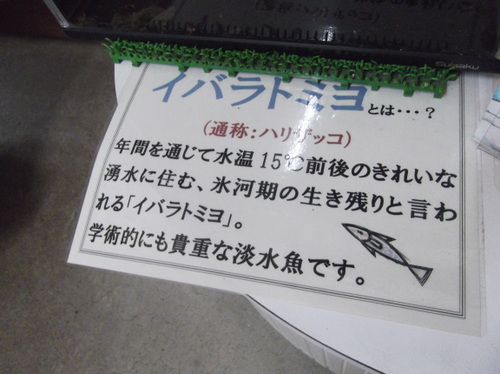 イバラトミヨとは・・・？
（通称：ハリザッコ）
年間を通じて水温15℃前後のきれいな
湧水に住む、氷河期の生き残りと言わ
れる「イバラトミヨ」。
学術的にも貴重な淡水魚です。